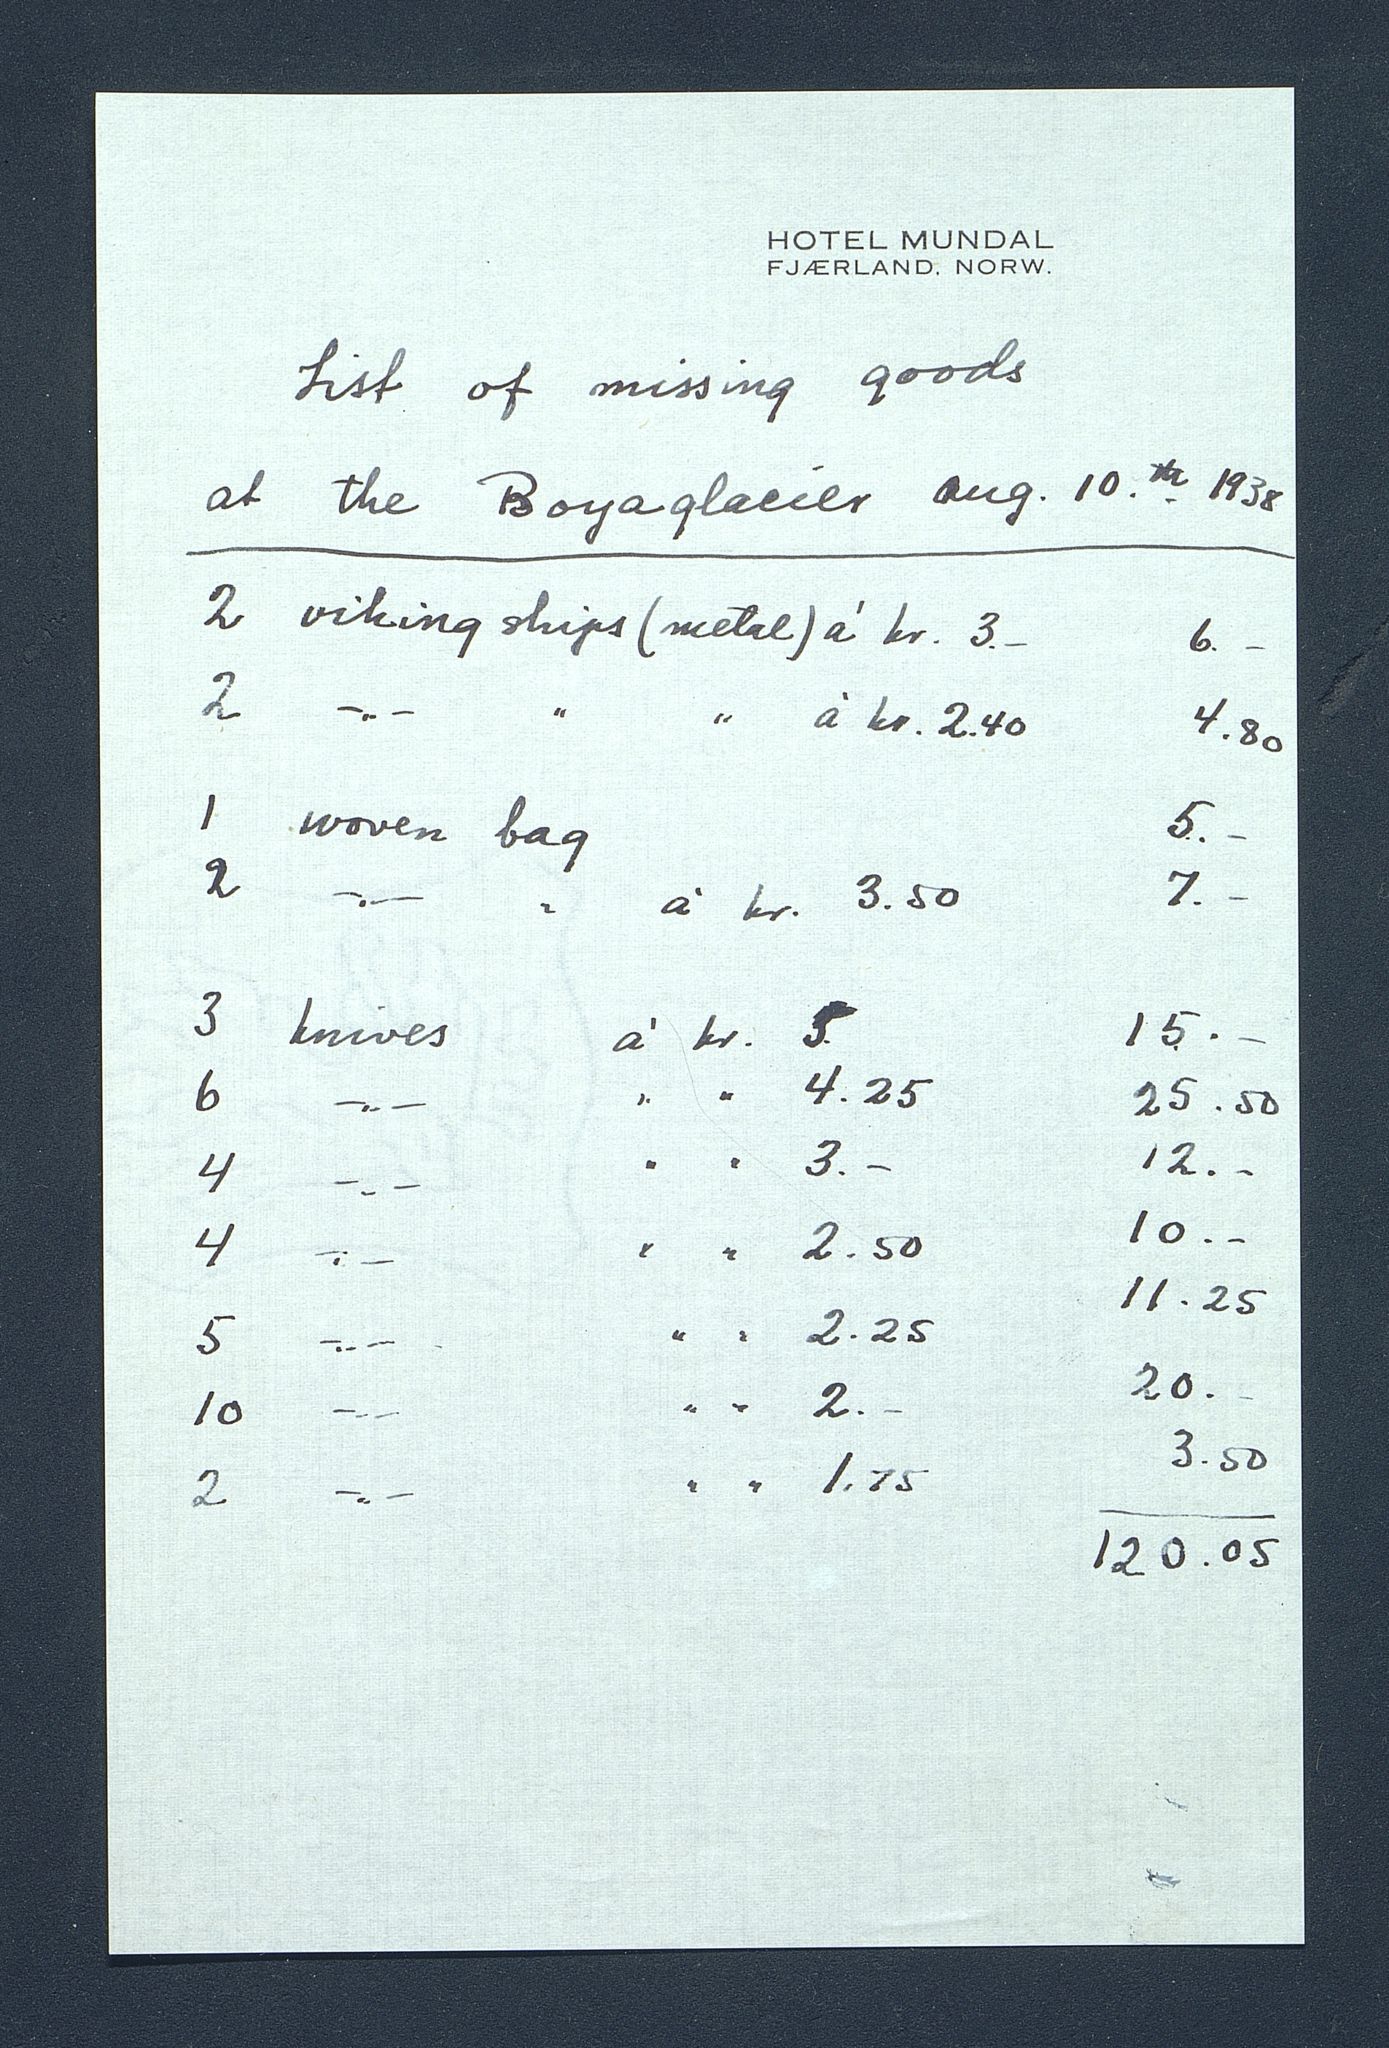 HOTEL MUNDAL
FJÆRLAND, NORW.
List of missing goods
at the Boyaglacier aug. 10.th 1938
2 viking ships (metal) á kr. 3.- 6.-
2 -"- " " à kr. 2.40 4.80
1 woven bag 5.-
2 -"- " à kr. 3.50 7.-
3 knives á kr. 5. 15.-
6 -"- " " 4.25 25.50
4 -"- " " 3.- 12.-
4 -"- " " 2.50 10.-
5 -"- " " 2.25 11.25
10 -"- " " 2.- 20.-
2 -"- " " 1.75 3.50
120.05